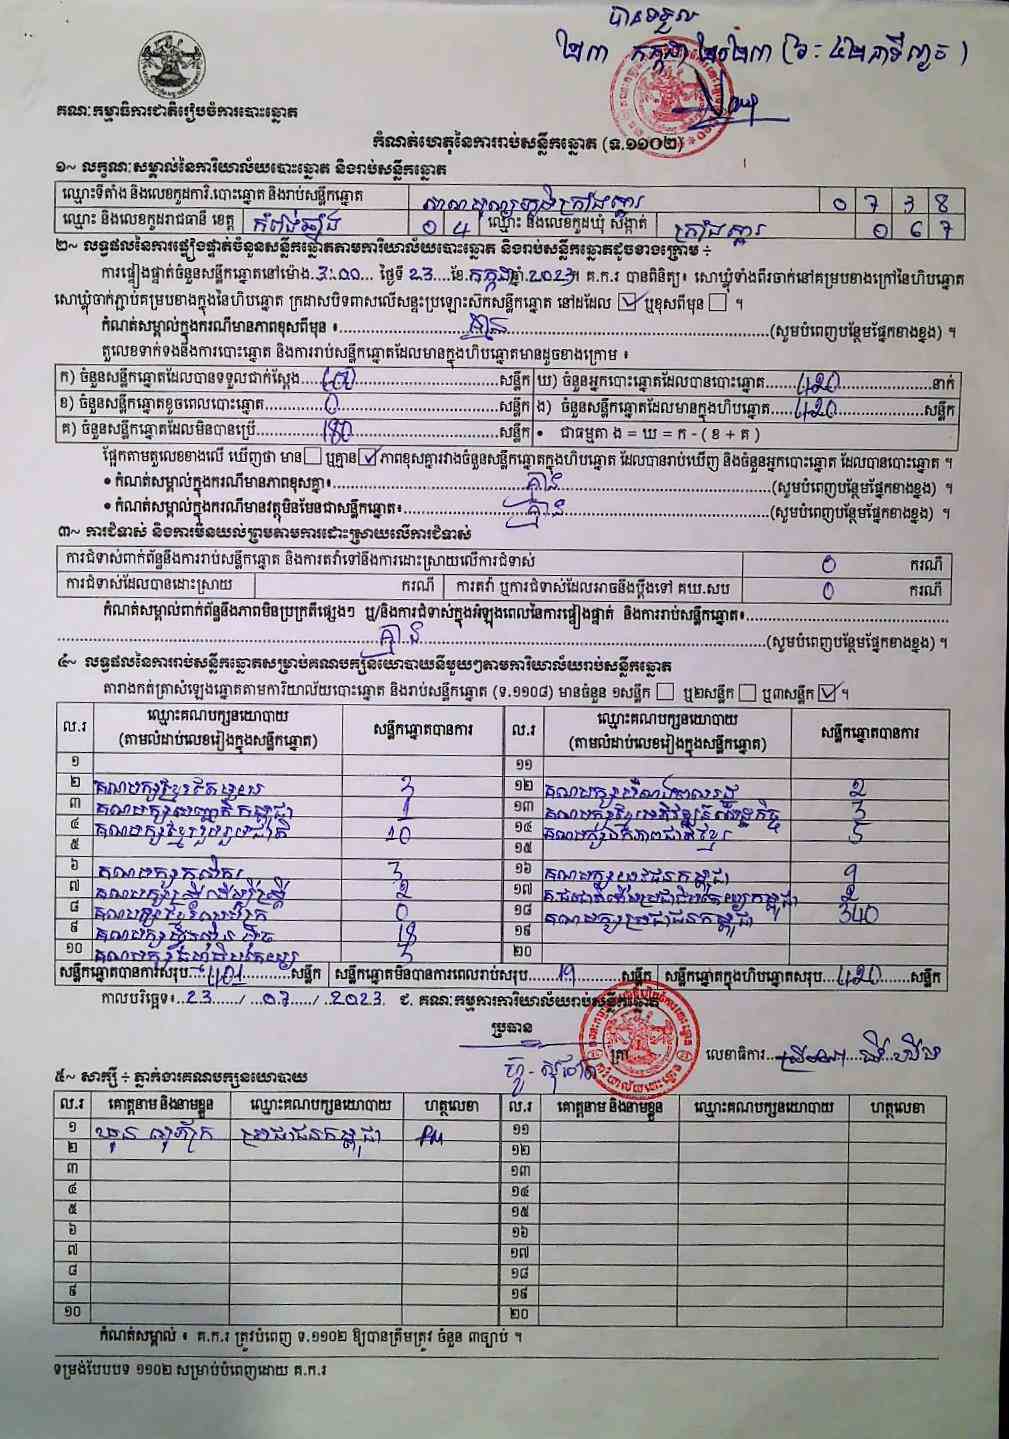 បានទទួល
២៣ កក្កដា ២០២៣ (៦ : ៤២ នាទីល្ងាច )
គណៈកម្មាធិការជាតិរៀបចំការបោះឆ្នោត
កំណត់ហេតុនៃការរាប់សន្លឹកឆ្នោត (ទ.១១០២)
១~ លក្ខណៈសម្គាល់នៃការិយាល័យបោះឆ្នោត និងរាប់សន្លឹកឆ្នោត
ឈ្មោះទីតាំង និងលេខកូដការិ.បោះឆ្នោត និងរាប់សន្លឹកឆ្នោត 0 7 3 8
ឈ្មោះ និងលេខកូដរាជធានី ខេត្ត កំពង់ឆ្នាំង 0 4 ឈ្មោះ និងលេខកូដឃុំ សង្កាត់ ក្រាំងស្គារ 0 6 7
២~ លទ្ធផលនៃការផ្ទៀងផ្ទាត់ចំនួនសន្លឹកឆ្នោតតាមការិយាល័យបោះឆ្នោត និងរាប់សន្លឹកឆ្នោតដូចខាងក្រោម ÷
ការផ្ទៀងផ្ទាត់ចំនួនសន្លឹកឆ្នោតនៅម៉ោង 3:00 ថ្ងៃទី 23 ខែ កក្កដា ឆ្នាំ 2023 គ.ក.រ បានពិនិត្យ សោឃ្លុំទាំងពីរចាក់នៅគម្របខាងក្រៅនៃហិបឆ្នោត
សោឃ្លុំចាក់ភ្ជាប់គម្របខាងក្នុងនៃហិបឆ្នោត ក្រដាសបិទពាសលើសន្ទះប្រឡោះសៀតសន្លឹកឆ្នោត នៅដដែល ☑ ឬខុសពីមុន ☐ ។
កំណត់សម្គាល់ក្នុងករណីមានភាពខុសពីមុន ៖ គ្មាន (សូមបំពេញបន្ថែមផ្នែកខាងខ្នង) ។
តួលេខទាក់ទងនឹងការបោះឆ្នោត និងការរាប់សន្លឹកឆ្នោតដែលមានក្នុងហិបឆ្នោតមានដូចខាងក្រោម ៖
ក) ចំនួនសន្លឹកឆ្នោតដែលបានទទួលជាក់ស្តែង សន្លឹក ឃ) ចំនួនអ្នកបោះឆ្នោតដែលបានបោះឆ្នោត 420 នាក់
ខ) ចំនួនសន្លឹកឆ្នោតខូចពេលបោះឆ្នោត 0 សន្លឹក ង) ចំនួនសន្លឹកឆ្នោតដែលមានក្នុងហិបឆ្នោត 420 សន្លឹក
គ) ចំនួនសន្លឹកឆ្នោតដែលមិនបានប្រើ 180 សន្លឹក • ជាធម្មតា ង = ឃ = ក - ( ខ + គ )
ផ្អែកតាមតួលេខខាងលើ ឃើញថា មាន ☐ ឬគ្មាន ☑ ភាពខុសគ្នារវាងចំនួនសន្លឹកឆ្នោតក្នុងហិបឆ្នោត ដែលបានរាប់ឃើញ និងចំនួនអ្នកបោះឆ្នោត ដែលបានបោះឆ្នោត ។
• កំណត់សម្គាល់ក្នុងករណីមានភាពខុសគ្នា៖ គ្មាន (សូមបំពេញបន្ថែមផ្នែកខាងខ្នង) ។
• កំណត់សម្គាល់ក្នុងករណីមានវត្ថុមិនមែនជាសន្លឹកឆ្នោត៖ គ្មាន (សូមបំពេញបន្ថែមផ្នែកខាងខ្នង) ។
៣~ ការជំទាស់ និងការមិនយល់ព្រមតាមការដោះស្រាយលើការជំទាស់
ការជំទាស់ពាក់ព័ន្ធនឹងការរាប់សន្លឹកឆ្នោត និងការតវ៉ាទៅនឹងការដោះស្រាយលើការជំទាស់ 0 ករណី
ការជំទាស់ដែលបានដោះស្រាយ ករណី ការតវ៉ា ឬការជំទាស់ដែលអាចនឹងប្តឹងទៅ គឃ.សប 0 ករណី
កំណត់សម្គាល់ពាក់ព័ន្ធនឹងភាពមិនប្រក្រតីផ្សេងៗ ឬ/និងការជំទាស់ក្នុងអំឡុងពេលនៃការផ្ទៀងផ្ទាត់ និងការរាប់សន្លឹកឆ្នោត៖
គ្មាន (សូមបំពេញបន្ថែមផ្នែកខាងខ្នង) ។
៤~ លទ្ធផលនៃការរាប់សន្លឹកឆ្នោតសម្រាប់គណបក្សនយោបាយនីមួយៗតាមការិយាល័យរាប់សន្លឹកឆ្នោត
តារាងកត់ត្រាសំឡេងឆ្នោតតាមការិយាល័យបោះឆ្នោត និងរាប់សន្លឹកឆ្នោត (ទ.១១០៨) មានចំនួន ១សន្លឹក ☐ ឬ២សន្លឹក ☐ ឬ៣សន្លឹក ☑ ។
ល.រ ឈ្មោះគណបក្សនយោបាយ (តាមលំដាប់លេខរៀងក្នុងសន្លឹកឆ្នោត) សន្លឹកឆ្នោតបានការ ល.រ ឈ្មោះគណបក្សនយោបាយ (តាមលំដាប់លេខរៀងក្នុងសន្លឹកឆ្នោត) សន្លឹកឆ្នោតបានការ
១ ១១
២ គណបក្សខ្មែរតែមួយ 3 ១២ 2
៣ គណបក្សសញ្ជាតិកម្ពុជា 1 ១៣ គណបក្សខ្មែរអភិវឌ្ឍន៍សេដ្ឋកិច្ច 3
៤ គណបក្សខ្មែររួបរួមជាតិ 10 ១៤ គណបក្សឯកភាពជាតិខ្មែរ 5
៥ ១៥
៦ គណបក្សកសិករ 3 ១៦ គណបក្សយុវជនកម្ពុជា 9
៧ គណបក្សស្ត្រីដើម្បីស្ត្រី 2 ១៧ 2
៨ គណបក្សខ្មែរ 0 ១៨ គណបក្សប្រជាជនកម្ពុជា 340
៩ គណបក្សហ៊្វុនស៊ិនប៉ិច 18 ១៩
១០ គណបក្សធម្មាធិបតេយ្យ 3 ២០
សន្លឹកឆ្នោតបានការសរុប 401 សន្លឹក សន្លឹកឆ្នោតមិនបានការពេលរាប់សរុប 19 សន្លឹក សន្លឹកឆ្នោតក្នុងហិបឆ្នោតសរុប 420 សន្លឹក
កាលបរិច្ឆេទ៖ 23 / 07 / 2023 ជ. គណៈកម្មការការិយាល័យរាប់សន្លឹកឆ្នោត
ប្រធាន
ត្រា លេខាធិការ
៥~ សាក្សី ÷ ភ្នាក់ងារគណបក្សនយោបាយ
ល.រ គោត្តនាម និងនាមខ្លួន ឈ្មោះគណបក្សនយោបាយ ហត្ថលេខា ល.រ គោត្តនាម និងនាមខ្លួន ឈ្មោះគណបក្សនយោបាយ ហត្ថលេខា
១ ប្រជាជនកម្ពុជា ១១
២ ១២
៣ ១៣
៤ ១៤
៥ ១៥
៦ ១៦
៧ ១៧
៨ ១៨
៩ ១៩
១០ ២០
កំណត់សម្គាល់ ៖ គ.ក.រ ត្រូវបំពេញ ទ.១១០២ ឱ្យបានត្រឹមត្រូវ ចំនួន ៣ច្បាប់ ។
ទម្រង់បែបបទ ១១០២ សម្រាប់បំពេញដោយ គ.ក.រ